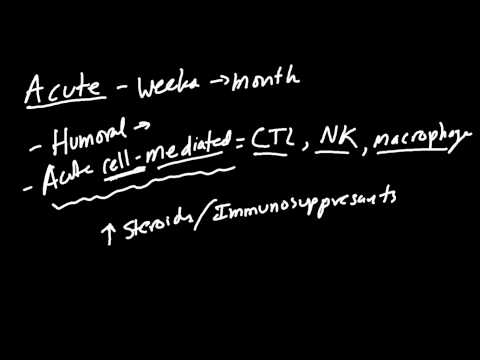 Acute - weeks → month
- Humoral →
- Acute cell-mediated = CTL, NK, macrophage
↑ Steroids/Immunosuppresants